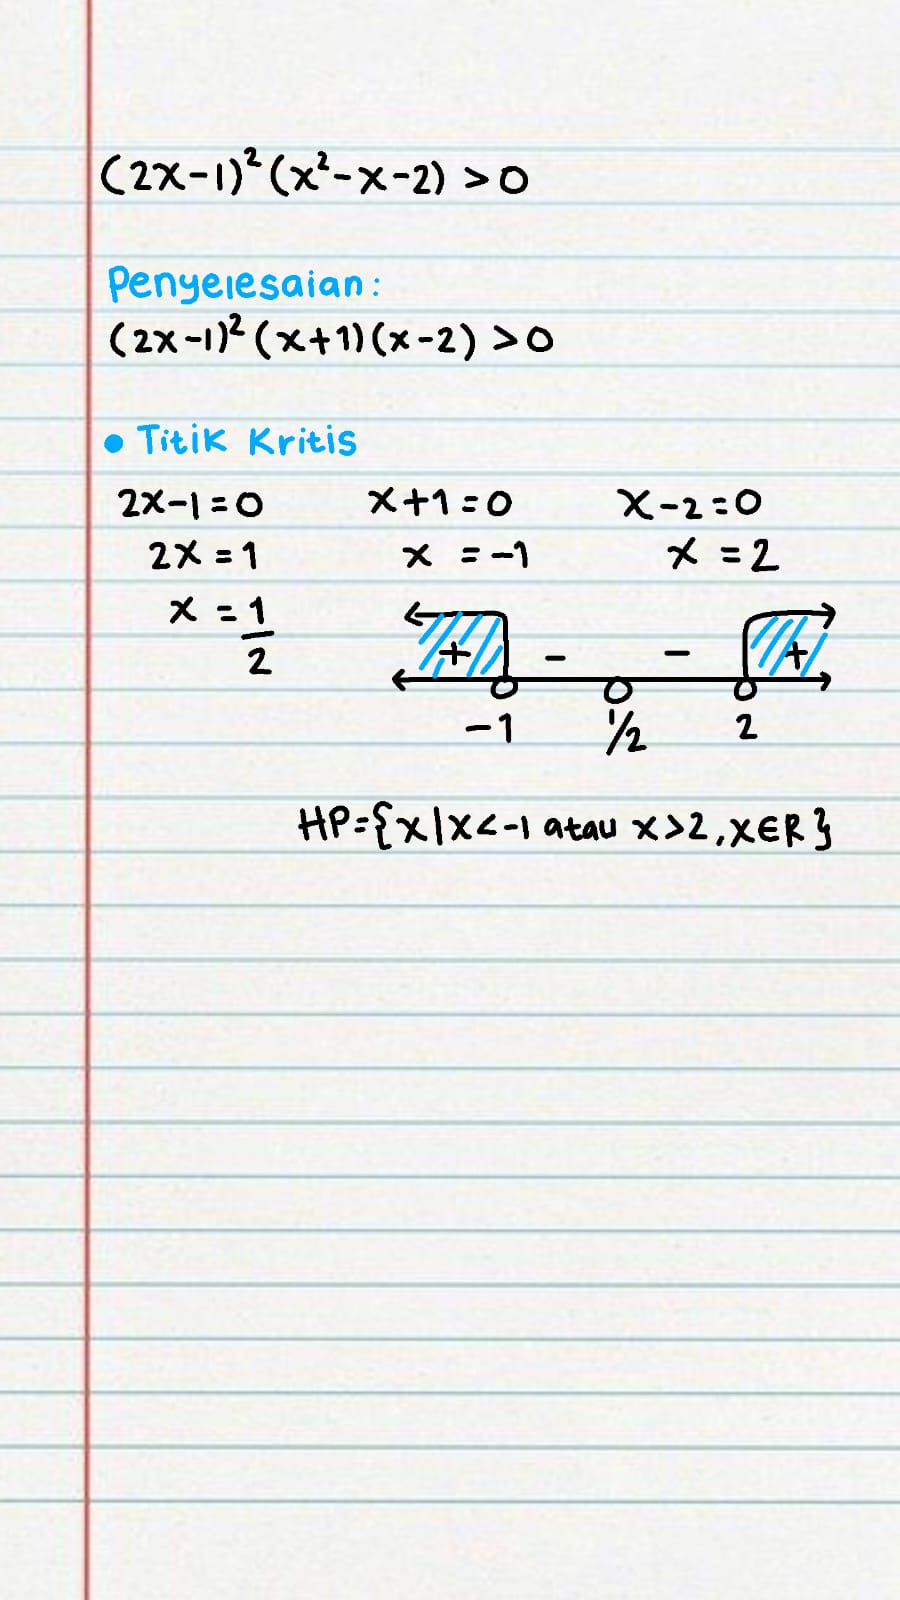 (2x-1)²(x²-x-2) >0
Penyelesaian:
(2x-1)²(x+1)(x-2) >0
• Titik Kritis
2x-1=0 x+1=0 x-2=0
2x=1 x =-1 x =2
x =1/2
+ - - +
-1 1/2 2
HP={x|x<-1 atau x>2,x∈R}